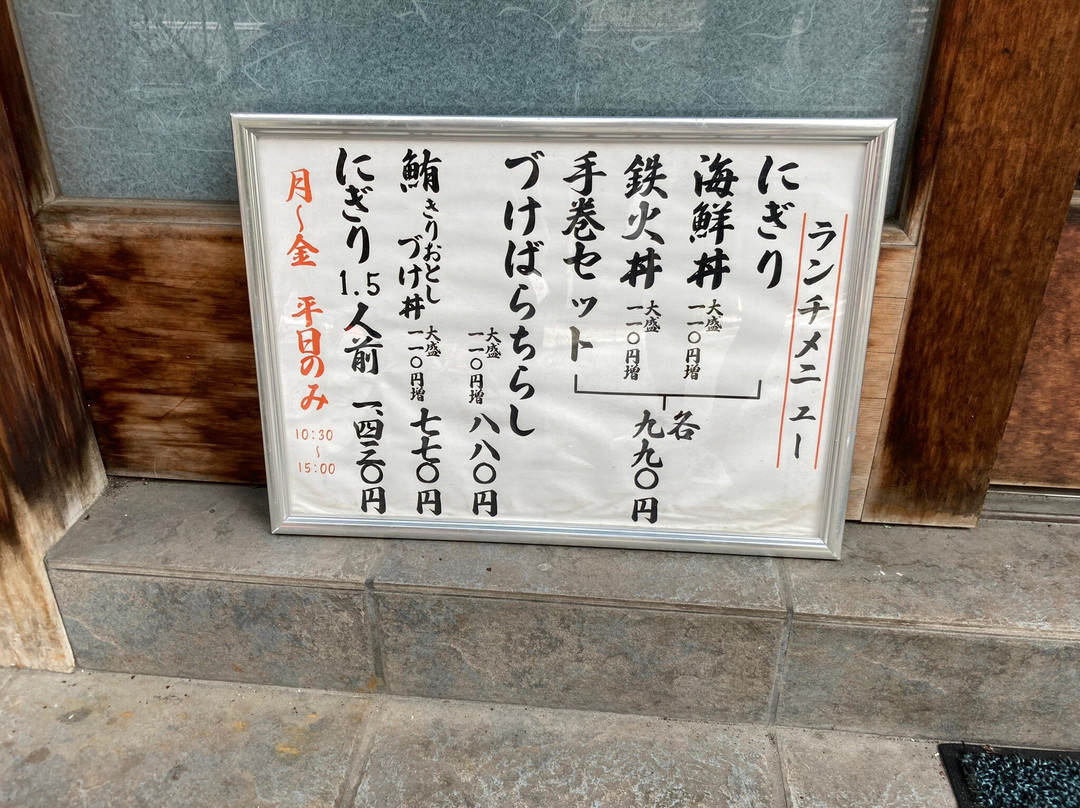 ランチメニュー
にぎり
海鮮丼 大盛一一〇円増
鉄火丼 大盛一一〇円増
手巻セット
各九九〇円
づけばらちらし 大盛一一〇円増 八八〇円
鮪きりおとしづけ丼 大盛一一〇円増 七七〇円
にぎり1.5人前 一、四三〇円
月〜金 平日のみ
10:30
〜
15:00